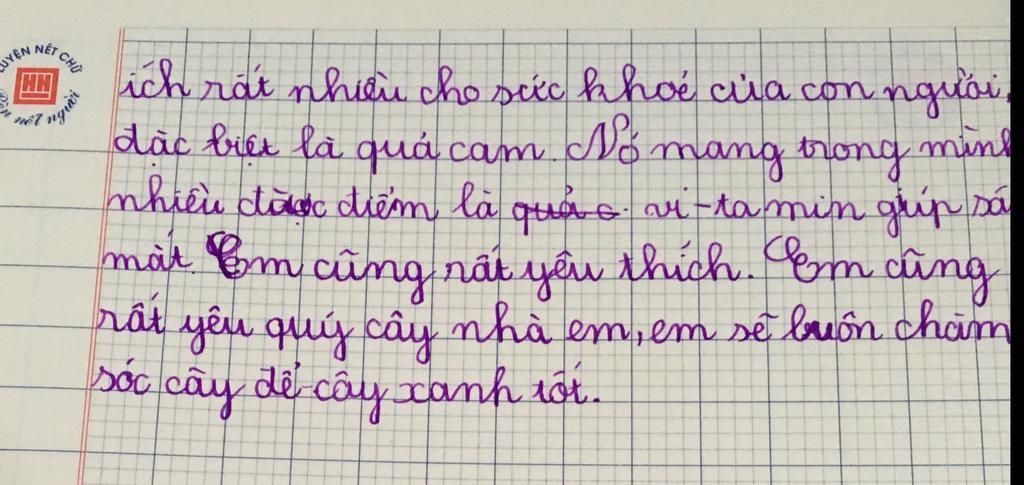 LUYỆN NÉT CHỮ
HH
nét người
ích rất nhiều cho sức khoẻ của con người,
đặc biệt là quả cam. Nó mang trong mình
nhiều đặc điểm là quả c. vi-ta min giúp sá
mắt. Em cũng rất yêu thích. Em cũng
rất yêu quý cây nhà em, em sẽ luôn chăm
sóc cây để cây xanh tốt.